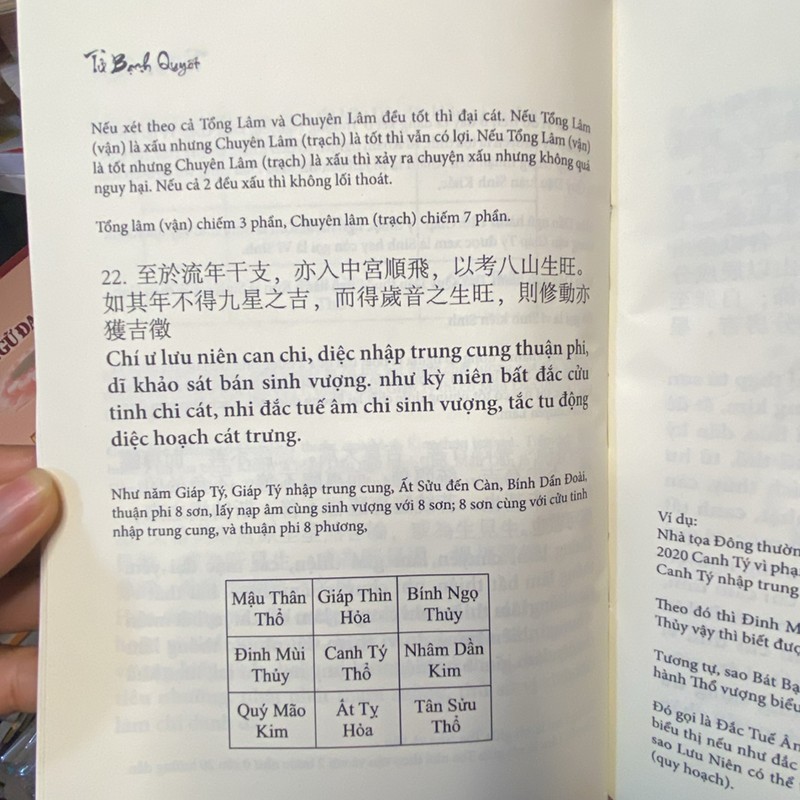 Tử Bạch Quyết
Nếu xét theo cả Tổng Lâm và Chuyên Lâm đều tốt thì đại cát. Nếu Tổng Lâm
(vận) là xấu nhưng Chuyên Lâm (trạch) là tốt thì vẫn có lợi. Nếu Tổng Lâm (vận)
là tốt nhưng Chuyên Lâm (trạch) là xấu thì xảy ra chuyện xấu nhưng không quá
nguy hại. Nếu cả 2 đều xấu thì không lối thoát.
Tổng lâm (vận) chiếm 3 phần, Chuyên lâm (trạch) chiếm 7 phần.
22. 至於流年干支，亦入中宮順飛，以考八山生旺。
如其年不得九星之吉，而得歲音之生旺，則修動亦
獲吉徵
Chí ư lưu niên can chi, diệc nhập trung cung thuận phi,
dĩ khảo sát bán sinh vượng. như kỳ niên bất đắc cửu
tinh chi cát, nhi đắc tuế âm chi sinh vượng, tắc tu động
diệc hoạch cát trưng.
Như năm Giáp Tý, Giáp Tý nhập trung cung, Ất Sửu đến Càn, Bính Dần Đoài,
thuận phi 8 sơn, lấy nạp âm cùng sinh vượng với 8 sơn; 8 sơn cùng với cửu tinh
nhập trung cung, và thuận phi 8 phương,
Mậu Thân Giáp Thìn Bính Ngọ
Thổ Hỏa Thủy
Đinh Mùi Canh Tý Nhâm Dần
Thủy Thổ Kim
Quý Mão Ất Tỵ Tân Sửu
Kim Hỏa Thổ
Ví dụ:
Nhà tọa Đông thườn
2020 Canh Tý vì phạ
Canh Tý nhập trung
Theo đó thì Đinh M
Thủy vậy thì biết đượ
Tương tự, sao Bát Bạ
hành Thổ vượng biểu
Đó gọi là Đắc Tuế Âm
biểu thị nếu như đắc
sao Lưu Niên có thể
(quy hoạch).